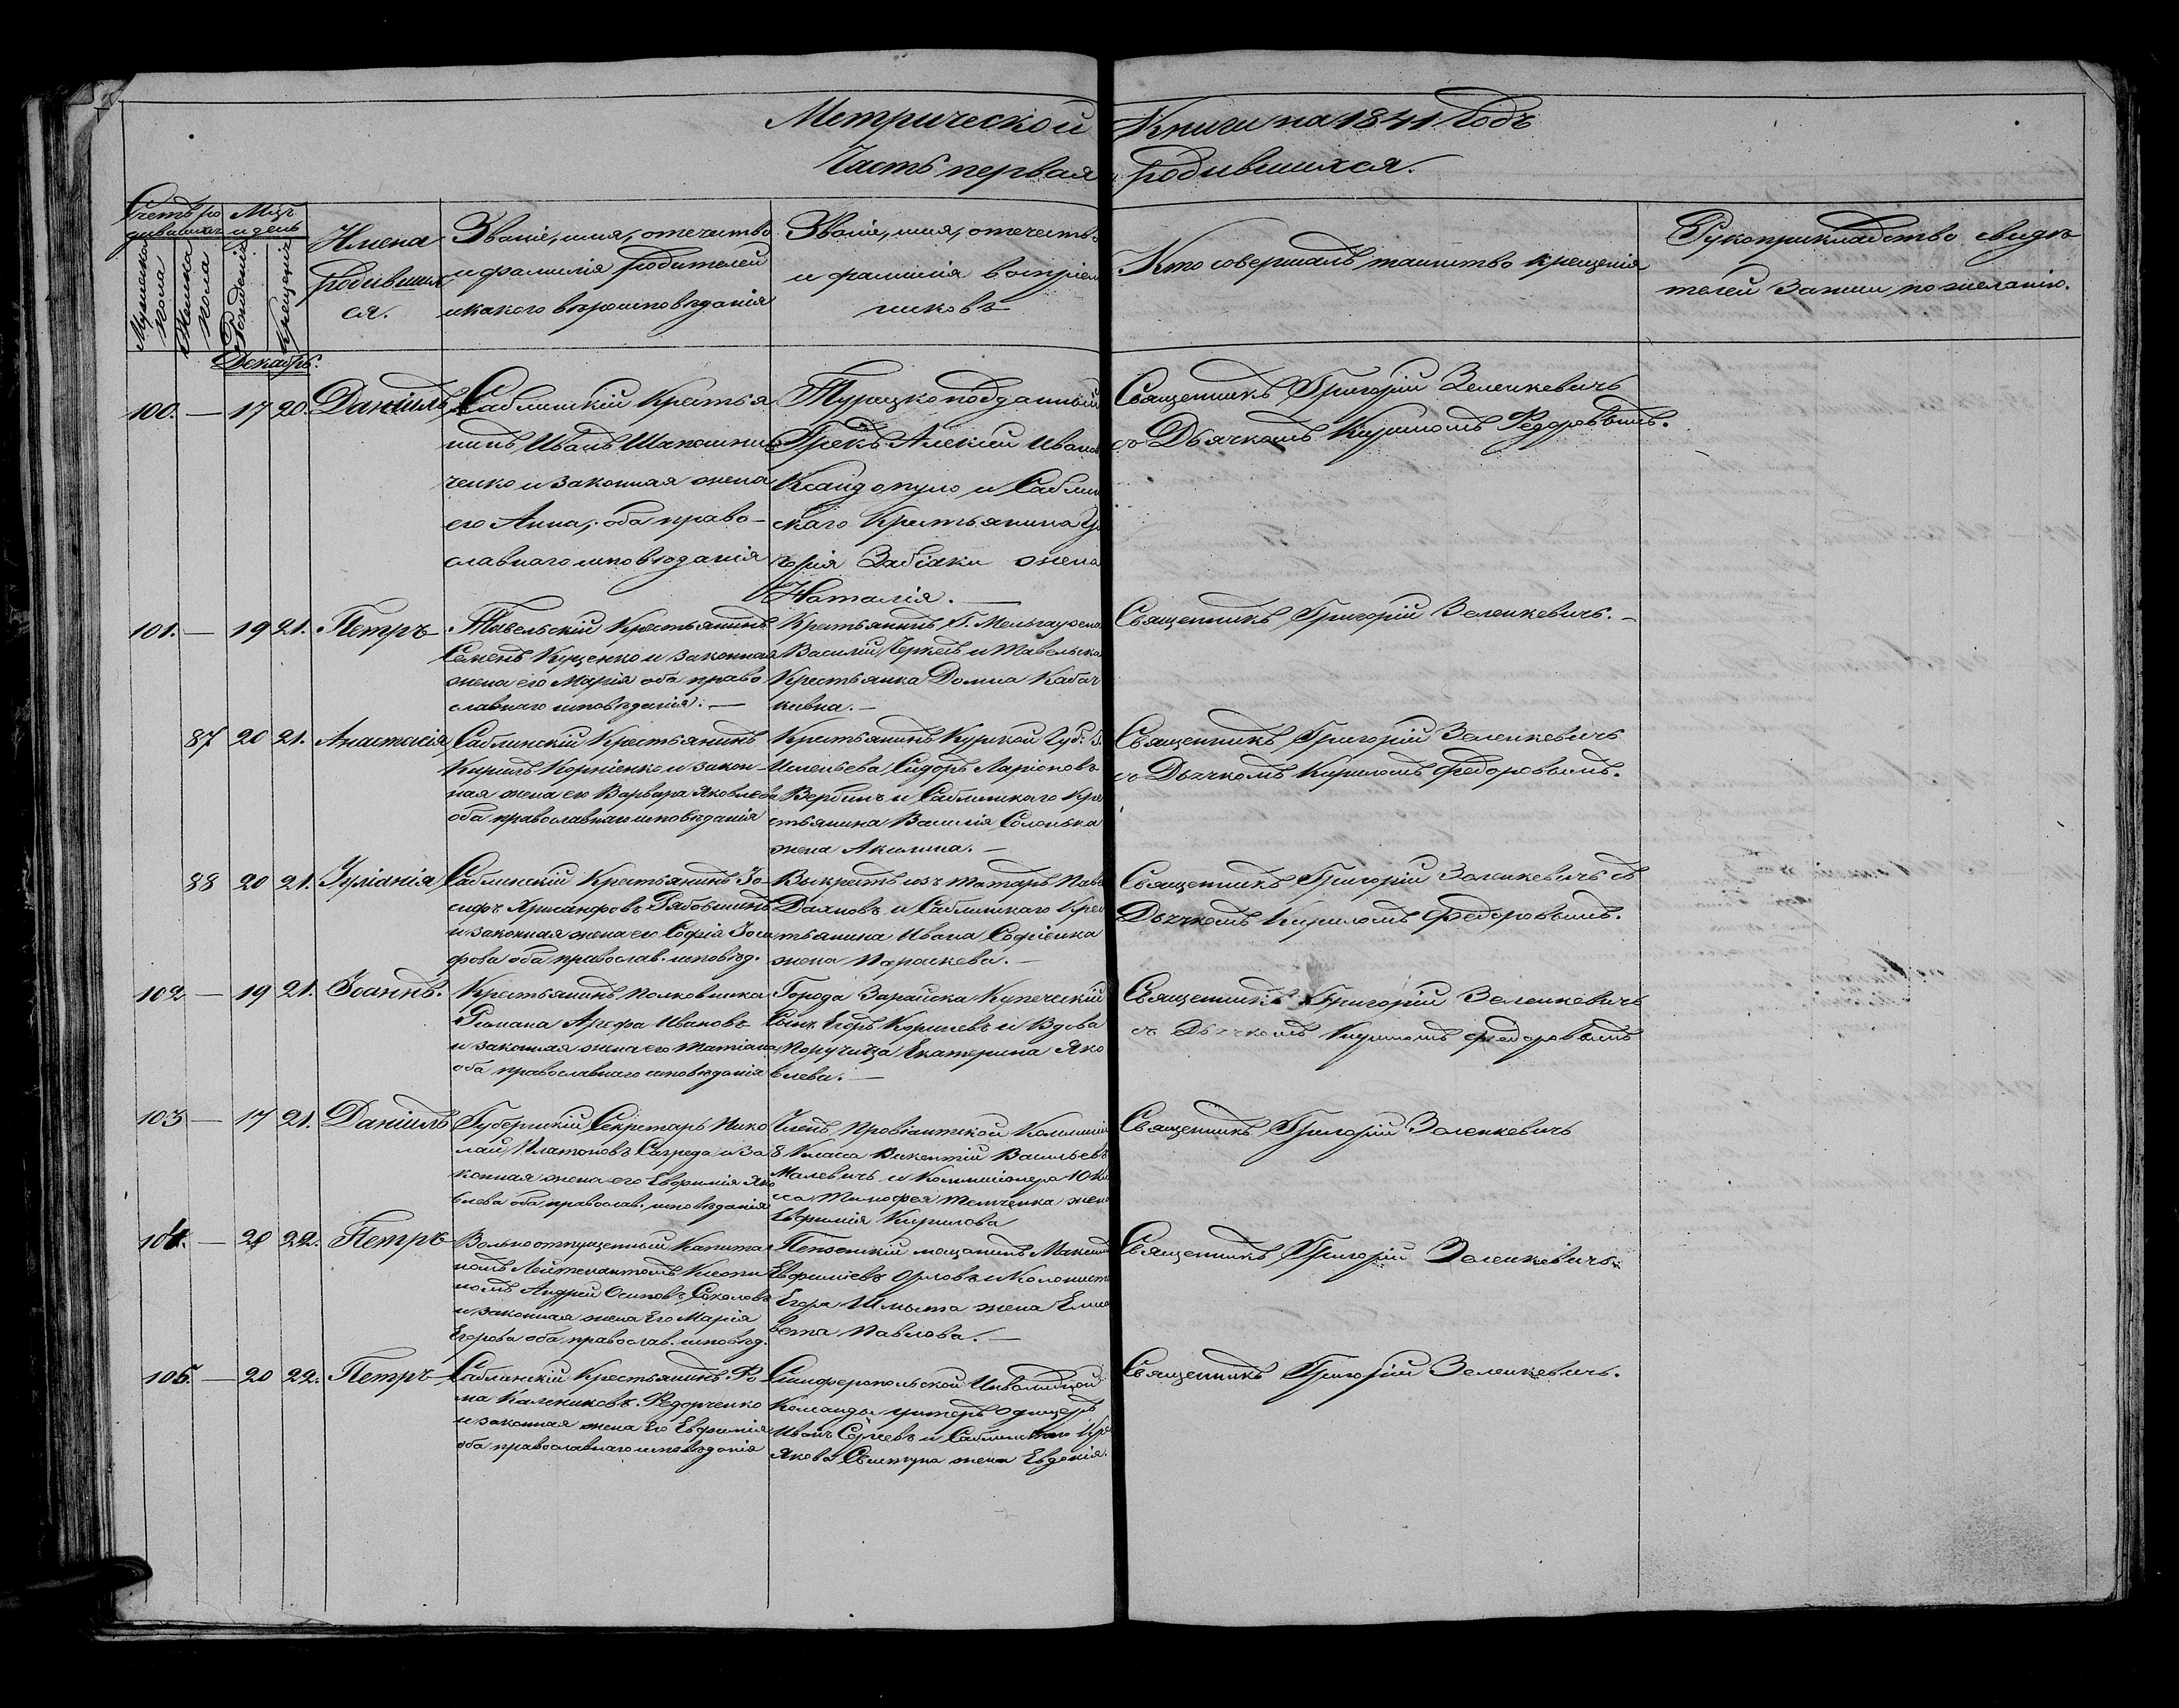 Метрической Книги на 1841 Годъ
Часть первая родившихся.
Счетъ ро
дившихся
Мужеска
пола
Женска
пола
Мцъ
и день
Рожденія
Крещенія
Имена
родивших
ся.
Званіе, имя, отечество
и фамилія родителей
и какого вероисповѣданія
Званіе, имя, отечеств.
и фамилія воспріем
никовъ
Кто совершалъ таинство крещенія
Рукоприкладство свидѣ
телей записи по желанію.
Декабрь.
100. — 17 20. Даніилъ
Саблинскій Крестья
нинъ Иванъ Шапошни
ченко и законная жена
его Анна, оба право-
славнаго исповѣданія
Турецкоподданный
Грекъ Алексій Иванов
Ксандопуло и Саблин
скаго Крестьянина Гри
горія Забіяки жена
Наталія. —
Священникъ Григорій Зеленкевичъ
съ Дьячкомъ Кириломъ Федоровымъ.
101. — 19 21. Петръ
Тавельскій Крестьянинъ
Семенъ Куценко и законная
жена его Марія оба право
славнаго исповѣданія. —
Крестьянинъ Г. Мельгаузена
Василій Черкесъ и Тавельска
Крестьянка Домна Кабач
кивна. —
Священникъ Григорій Зеленкевичъ. —
87 20 21. Анастасія
Саблинскій Крестьянинъ
Кирилъ Корніенко и закон-
ная жена его Варвара Яковлева
оба православнаго исповѣданія
Крестьянинъ Курской Губ. Г.
Сидоръ Ларіоновъ
Вербинъ и Саблинскаго Кре
стьянина Василія Солонька
жена Акилина. —
Священникъ Григорій Зеленкевичъ
съ Дьячкомъ Кириломъ Федоровымъ.
88 20 21. Іуліанія
Саблинскій Крестьянинъ Іо-
сифъ Хрисанфовъ
и законная жена его Софія Іоси
фова оба православ. исповѣд.
Выкрестъ изъ татаръ Павл
Даяновъ и Саблинскаго Крес
тьянина Ивана Софіенка
жена Параскева. —
Священникъ Григорій Зеленкевичъ съ
Дьячкомъ Кириломъ Федоровымъ.
102 — 19 21. Іоаннъ.
Крестьянинъ полковника
Романа Арефа Ивановъ
и законная жена его Татіана
оба православнаго исповѣданія
Города Зарайска Купеческій
Сынъ Егоръ и Вдова
Поручица Екатерина Яко
влева. —
Священникъ Григорій Зеленкевичъ
съ Дьячкомъ Кириломъ Федоровымъ
103 — 17 21. Даніилъ
Губернскій Секретарь Нико
лай Платоновъ Саграда и за
конная жена его Евфимія Яко
влева оба православ. исповѣданія
Членъ Провіантской Коммиссіи
8 Класса Викентій Васильевъ
Малевичъ и Коммиссіонера 10 Кла
сса Тимофея Темченка жена
Евфимія Кирилова
Священникъ Григорій Зеленкевичъ
104. — 20 22. Петръ
Вольноотпущенный Капита
номъ Лейтенантомъ
Андрей Осиповъ Соколовъ
и законная жена Его Марія
Егорова оба православ. исповѣд.
Пензенскій мещанинъ Максимъ
Евфиміевъ Орловъ и Колонист
Егора Шмыта жена Елиса
вета Павлова. —
Священникъ Григорій Зеленкевичъ.
105. — 20 22. Петръ
Саблинскій Крестьянинъ Ро
ма Калениковъ Федорченко
и законная жена Его Евфимія
оба православнаго исповѣданія
Симферопольской Инвалидной
Команды унтеръ офицеръ
Иванъ Сергеевъ и Саблинскаго Кре
Якова Свистуна жена Евдокія.
Священникъ Григорій Зеленкевичъ.